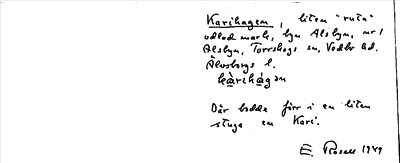 Karihagen, liten "ruta"
odlad mark, byn Alsbyn, nr 1
Alsbyn, Torrskogs sn, Vedbo hd.
Älvsborgs l.
kàrihágan
Där bodde förr i en liten
stuga en Kari.
E. Rosell 1949